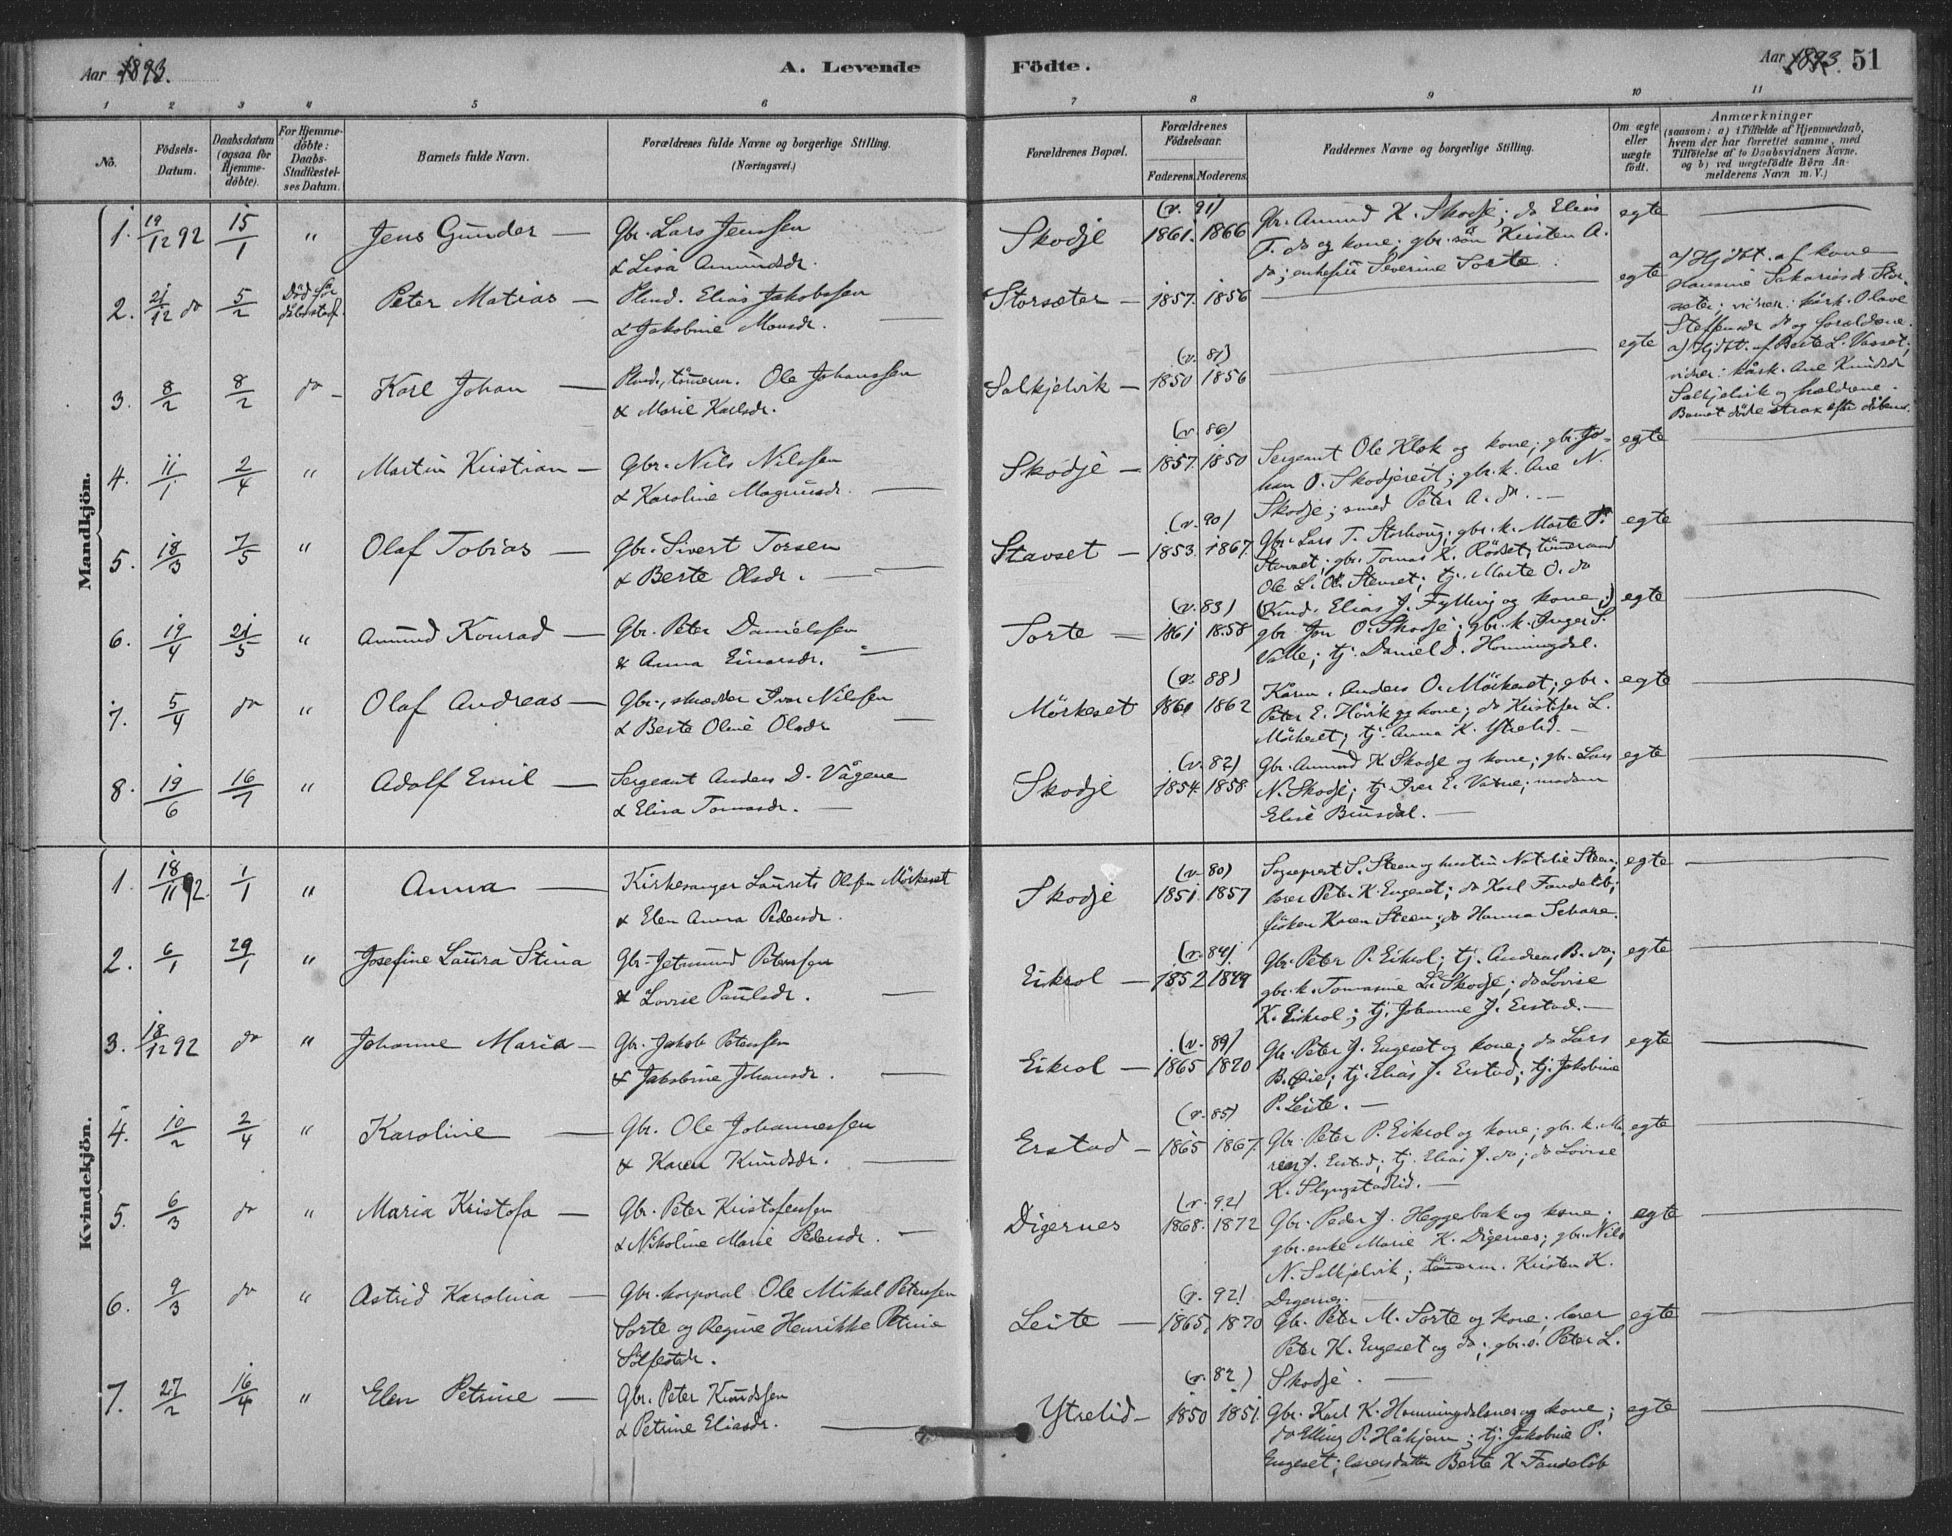 Aar 1893.
A. Levende
Födte.
Aar 1893. 51
1 2 3 4 5 6 7 8 9 10 11
No.
Födsels-
Datum.
Daabsdatum
(ogsaa for
Hjemme-
döbte).
For Hjemme-
döbte:
Daabs-
Stadfæstel-
ses Datum.
Barnets fulde Navn.
Forældrenes fulde Navne og borgerlige Stilling.
(Næringsvei.)
Forældrenes Bopæl.
Forældrenes
Födselsaar.
Faderens. Moderens.
Faddernes Navne og borgerlige Stilling.
Om ægte
eller
uægte
födt.
Anmærkninger
(saasom: a) i Tilfælde af Hjemmedaab,
hvem der har forrettet samme, med
Tilföielse af to Daabsvidners Navne,
og b) ved uægtefödte Börn An-
melderens Navn m. V.)
Mandkjön.
1. 19/12 92 15/1 " Jens Gunder — Gbr. Lars Jenssen
& Lisa Amundsdr.
Skodje (v. 91)
1861. 1866
Gbr. Amund K. Skodje; do Elias
T. do og kone; gbr. sön Kirsten A.
do; enkefru Severine Sorte
egte
2. 21/12 do 5/2 Död för
dåbsstadf. Peter Matias — Plmd. Elias Jakobssen
& Jakobine Monsdr. —
Storsæter — 1857. 1856
egte
a) Hjdbt. af kone
Hansine Sakariasdr Stor-
sæter; vidner: kårk. Olave
Steffensdr do og forældrene.
3. 8/2 8/2 do Karl Johan — Plmd., tömerm. Ole Johanssen
& Marie Karlsdr.
Solkjelvik — (v. 81)
1850 1856
egte
a) Hjdbt. af Berte L. Vasset;
vidner: kårk. Ane Knudsdr
Solkjelvik og forældrene.
Barnet döde strax efter dåben.
4. 11/1 2/4 " Martin Kristian — Gbr. Nils Nilssen
& Karoline Magnusdr. —
Skodje — (v. 86)
1857. 1850
Sergeant Ole Klok og kone; gbr. Jo-
han O. Skodjereit; gbr. k. Ane N.
Skodje; smed Peter A. do. —
egte
5. 18/3 7/5 " Olaf Tobias — Gbr. Sivert Torsen
& Berte Olsdr. —
Stavset — (v. 90)
1853. 1867.
Gbr. Lars T. Storhoug; gbr. k. Marte P.
Stavset; gbr. Tomas K. Rödset; tömermand
Ole L. Stavset; tj. Marte O. do
egte
6. 19/4 21/5 " Amund Konrad — Gbr. Peter Danielssen
& Anna Einarsdr. —
Sorte — (v. 83)
1861 1858
(Kmd. Elias J. Fylling og kone;)
gbr. Jon O. Skodje; gbr. k. Inger S.
Valle; tj. Daniel D. Honningdal.
egte
7. 5/4 do " Olaf Andreas — Gbr., skrædder Iver Nilssen
& Berte Oline Olsdr —
Mörkeset (v. 88)
1861 1862
Kårm. Anders O. Mörkeset; gbr.
Peter E. Hövik og kone; do Kristofer L.
Mörkeset; tj. Anna K. Ytrelid. —
egte
8. 19/6 16/7 " Adolf Emil — Sergeant Anders D. Vågene
& Elisa Tomasdr. —
Skodje (v. 82)
1854. 1858.
Gbr. Amund K. Skodje og kone; gbr. Lars
N. Skodje; tj. Iver E. Vatne; madam
Elise Brusdal. —
egte
Kvindekjön.
1. 18/11 92. 1/1 " Anna — Kirkesanger Laurits Olsen Mörkeset
& Elen Anna Pedersdr.
Skodje (v. 80)
1851. 1857
Sogneprest S. Steen og hustru Natalie Steen;
lærer Peter K. Engeset; do Karl Fandelöb;
fröken Karen Steen; do Hanna
egte
2. 6/1 29/1 " Josefine Laura Stina Gbr. Jetmund Peterssen
& Lovise Paulsdr. —
Eikrol — (v. 84)
1852 1849
Gbr. Peter P. Eikrol; tj. Andreas B. do;
gbr. k. Tomasine L. Skodje; do Lovise
K. Eikrol; tj. Johanne J. Erstad. —
egte
3. 18/12 92 do " Johanne Maria — Gbr. Jakob Peterssen
& Jakobine Johansdr. —
Eikrol — (v. 89)
1865 1870
Gbr. Peter J. Engeset og kone; do Lars
B. Öie; tj. Elias J. Erstad; tj. Jakobine
P. Leite. —
egte
4. 10/2 2/4 " Karoline — Gbr. Ole Johannessen
& Karen Knudsdr. —
Erstad — (v. 85)
1865 1867.
Gbr. Peter P. Eikrol og kone; gbr. k. Ma-
ren J. Erstad; tj. Elias J. do; do Lovise
K. Slyngstadlid. —
egte
5. 6/3 do " Maria Kristofa — Gbr. Peter Kristofersen
& Nikoline Marie Pedersdr. —
Digernes (v. 92)
1868. 1872
Gbr. Peder J. Heggebak og kone;
gbr. enke Marie K. Digernes; gbr. Nils
N. Solkjelvik; tömerm. Kristen K.
Digernes. —
egte
6. 9/3 do " Astrid Karolina — Gbr. korporal Ole Mikal Peterssen
Sorte og Regine Henrikke Petrine
Sölfestdr.
Leite — (v. 92)
1865. 1870
Gbr. Peter M. Sorte og kone; lærer
Peter K. Engeset og do; gbr. s. Peter L.
Skodje. —
egte
7. 27/2 16/4 " Elen Petrine — Gbr. Peter Knudssen
& Petrine Eliasdr. —
Ytrelid — (v. 82)
1850 1851.
Gbr. Karl K. Honningdalsnes og kone;
do Elling P. Håkjem; tj. Jakobine P.
Engeset; lærersdatter Berte K. Fandelöb
egte